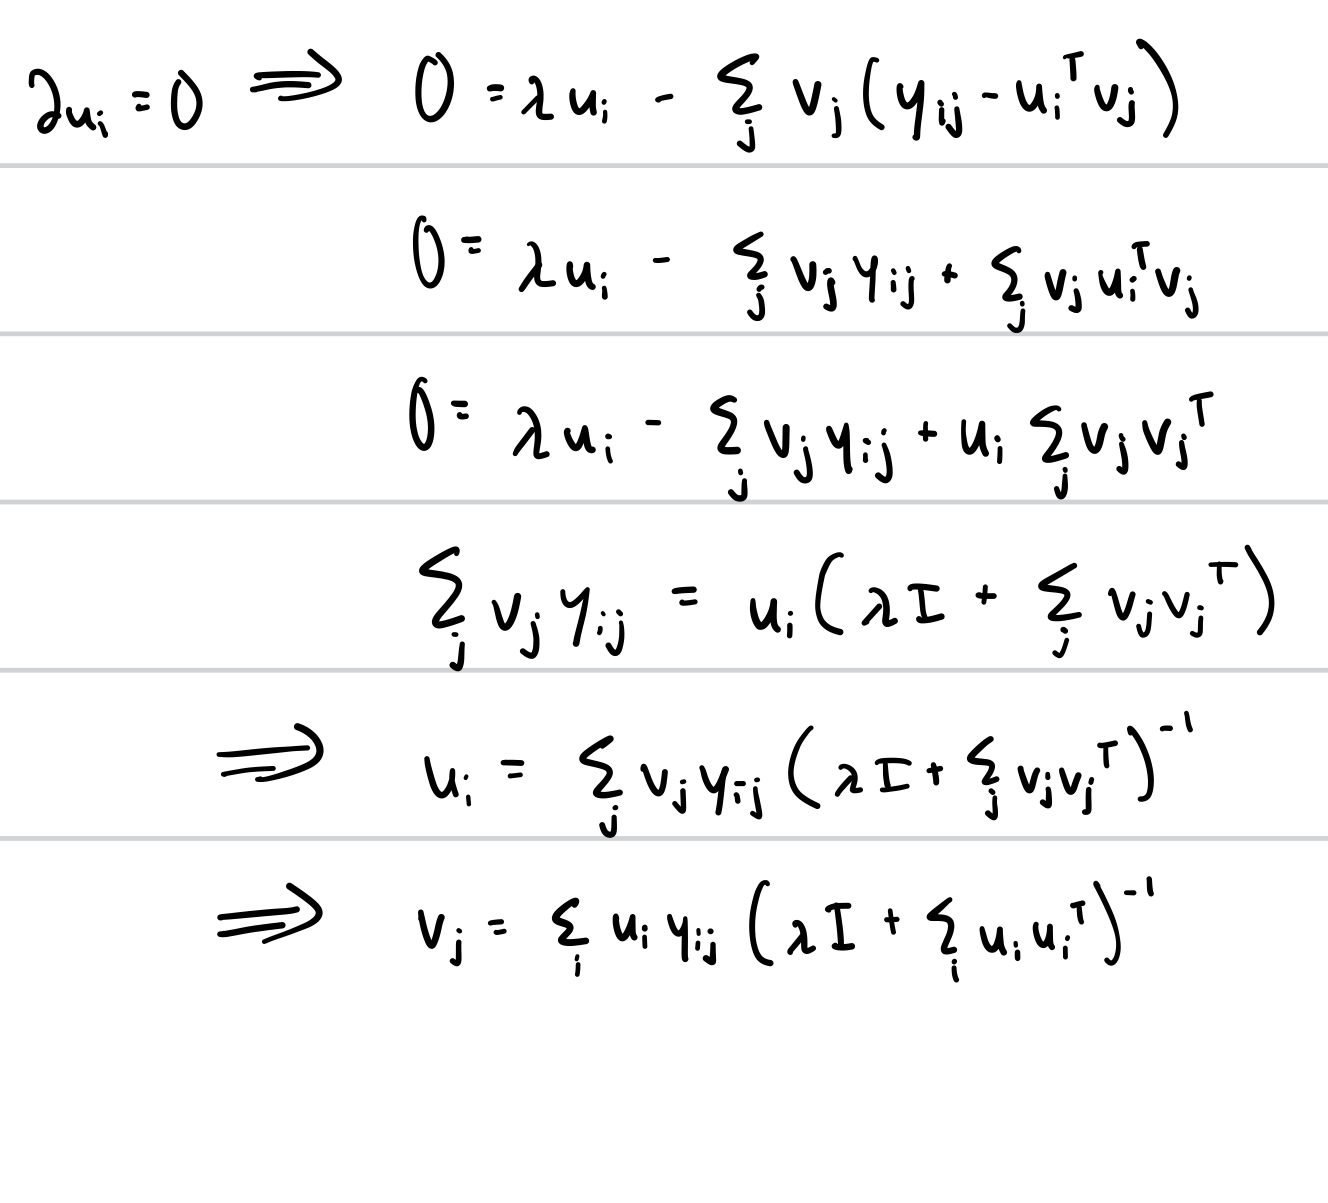 ∂uᵢ = 0 ⟹ 0 = λuᵢ - Σⱼ vⱼ(yᵢⱼ - uᵢᵀvⱼ)
0 = λuᵢ - Σⱼ vⱼyᵢⱼ + Σⱼ vⱼuᵢᵀvⱼ
0 = λuᵢ - Σⱼ vⱼyᵢⱼ + uᵢ Σⱼ vⱼvⱼᵀ
Σⱼ vⱼyᵢⱼ = uᵢ(λI + Σⱼ vⱼvⱼᵀ)
⟹ uᵢ = Σⱼ vⱼyᵢⱼ(λI + Σⱼ vⱼvⱼᵀ)⁻¹
⟹ vⱼ = Σᵢ uᵢyᵢⱼ(λI + Σᵢ uᵢuᵢᵀ)⁻¹